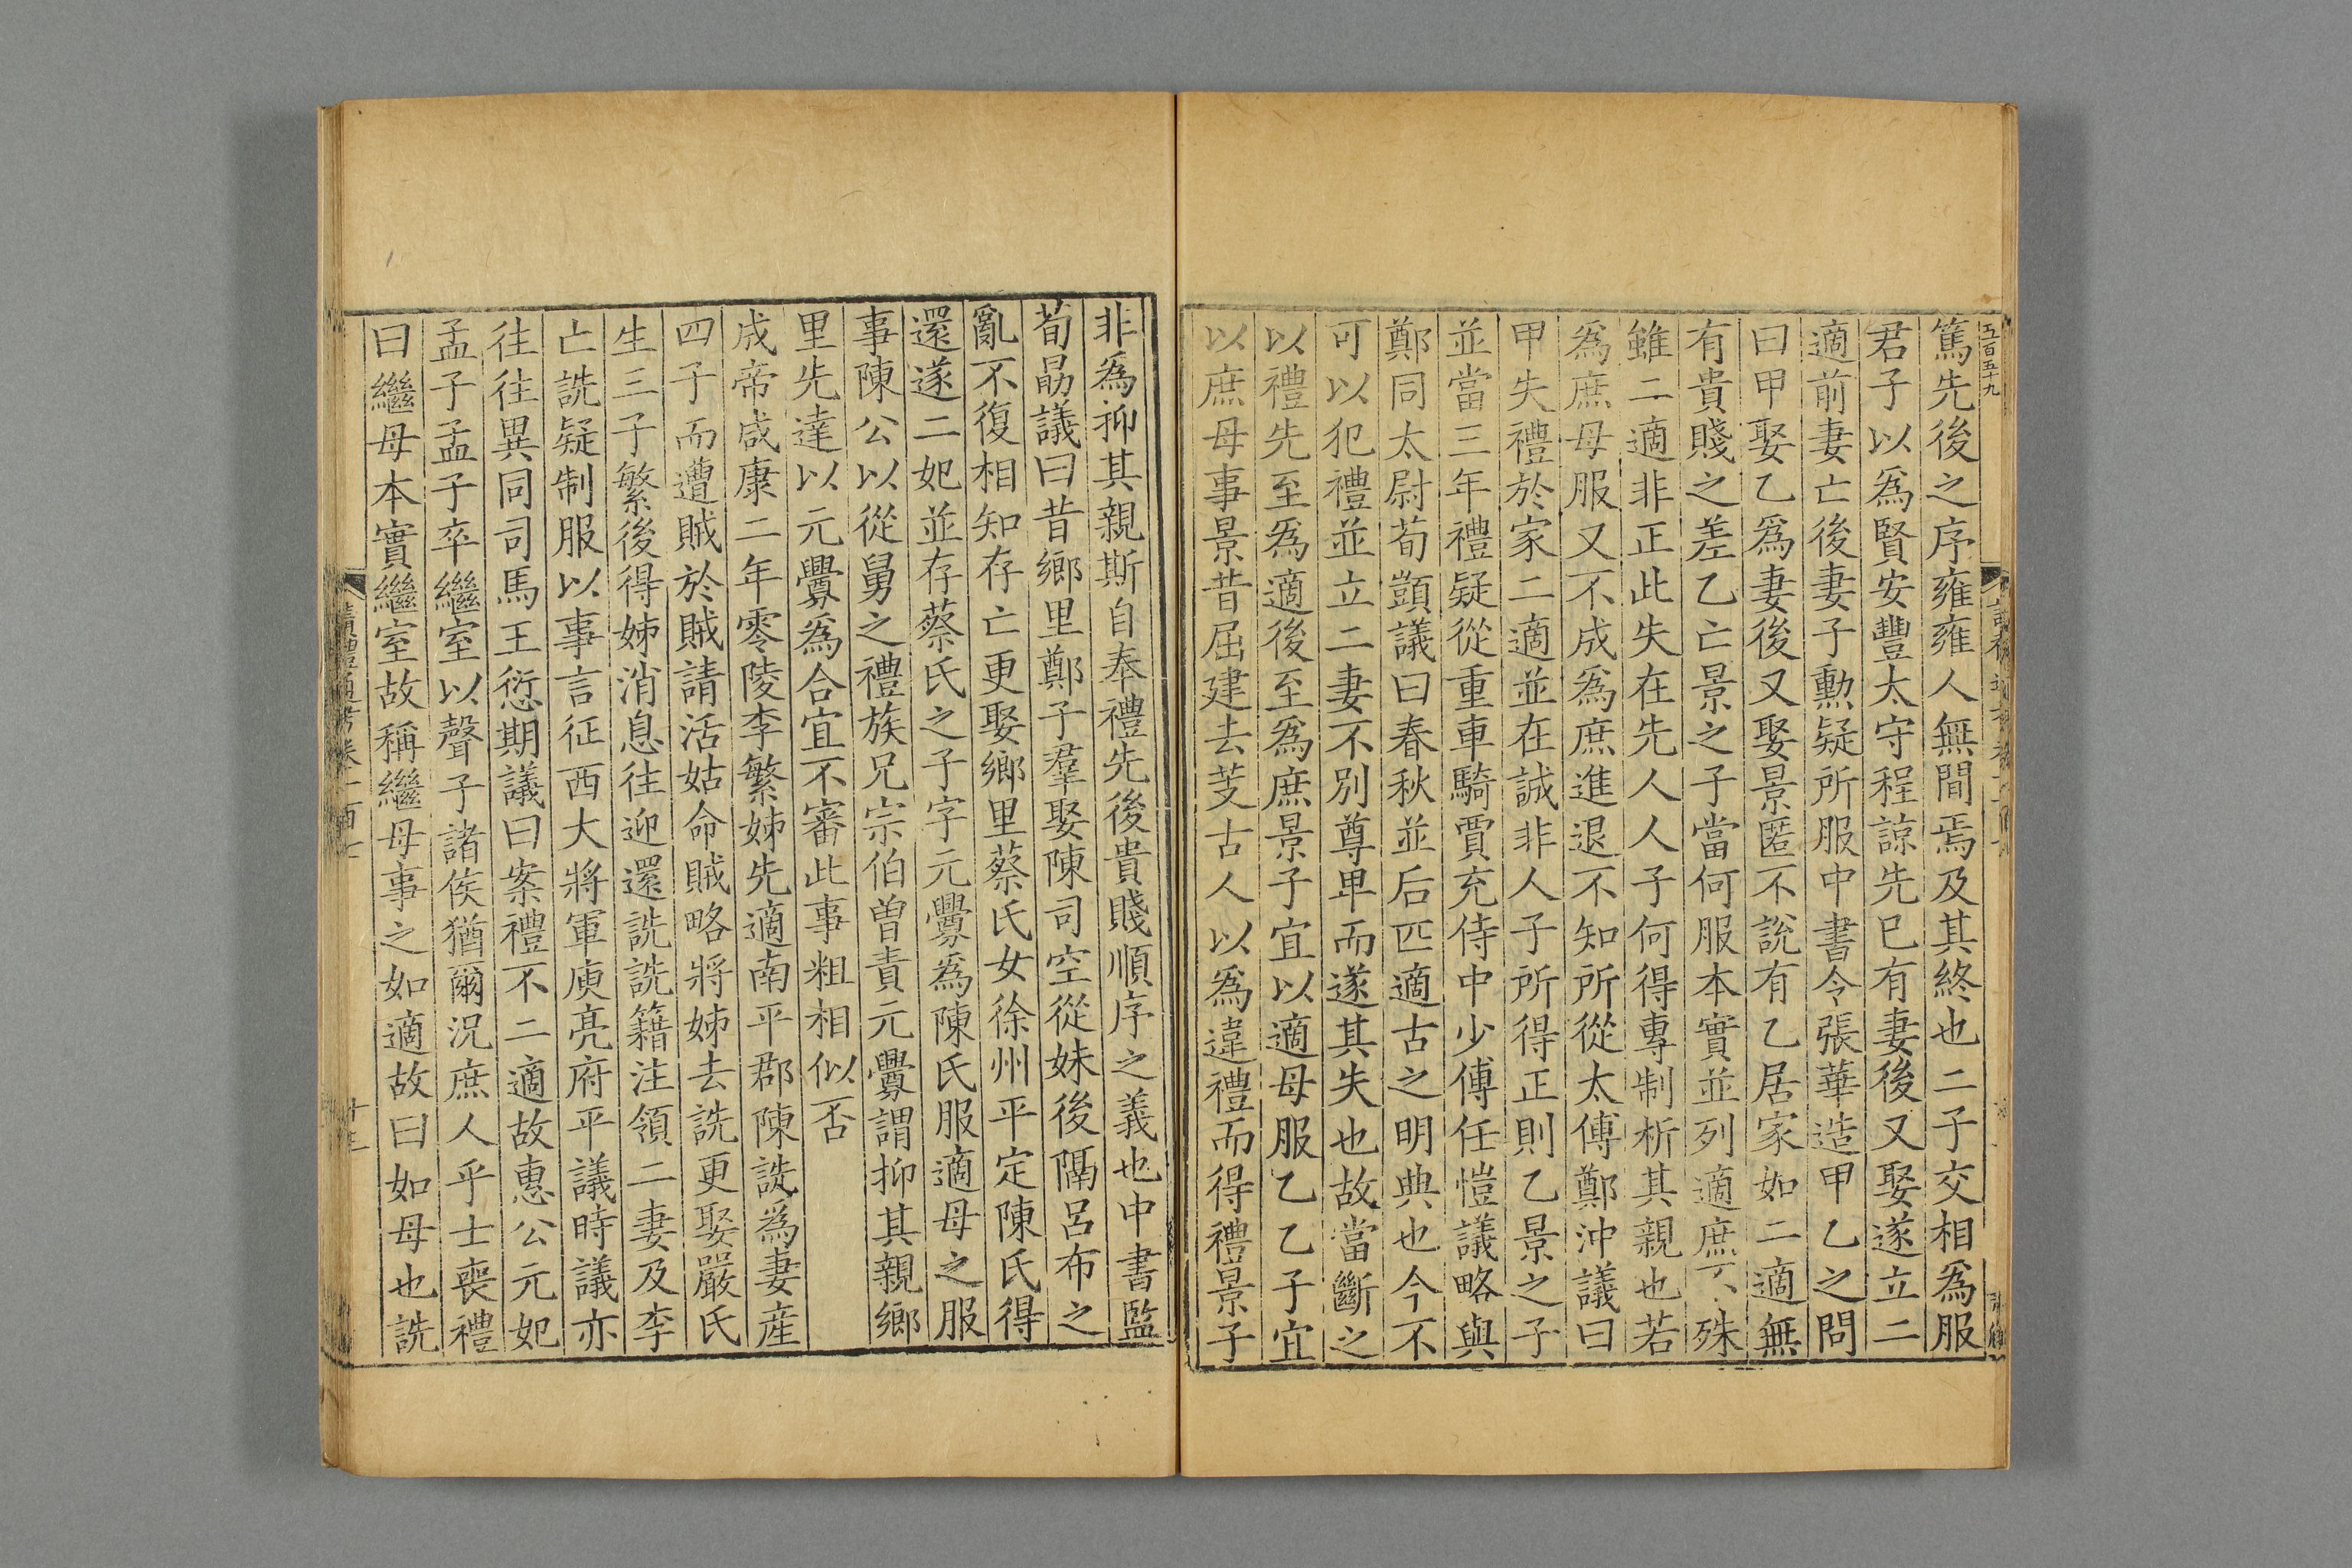 五百五十九
篤先後之序雍雍人無間焉及其終也二子交相為服
君子以為賢安豐太守程諒先已有妻後又娶遂立二
適前妻亡後妻子勲疑所服中書令張華造甲乙之問
曰甲娶乙為妻後又娶景匿不說有乙居家如二適無
有貴賤之差乙亡景之子當何服本實並列適庶不殊
雖二適非正此失在先人人子何得專制析其親也若
為庶母服又不成為庶進退不知所從太傅鄭沖議曰
甲失禮於家二適並在誠非人子所得正則乙景之子
並當三年禮疑從重車騎賈充侍中少傅任愷議略與
鄭同太尉荀顗議曰春秋並后匹適古之明典也今不
可以犯禮並立二妻不別尊卑而遂其失也故當斷之
以禮先至為適後至為庶景子宜以適母服乙乙子宜
以庶母事景昔屈建去芰古人以為違禮而得禮景子
非為抑其親斯自奉禮先後貴賤順序之義也中書監
荀勗議曰昔鄉里鄭子羣娶陳司空從妹後隔呂布之
亂不復相知存亡更娶鄉里蔡氏女徐州平定陳氏得
還遂二妃並存蔡氏之子字元舋為陳氏服適母之服
事陳公以從舅之禮族兄宗伯曾責元舋謂抑其親鄉
里先達以元舋為合宜不審此事粗相似否
成帝咸康二年零陵李繁姊先適南平郡陳詵為妻産
四子而遭賊於賊請活姑命賊略將姊去詵更娶嚴氏
生三子繁後得姊消息往迎還詵詵籍注領二妻及李
亡詵疑制服以事言征西大將軍庾亮府平議時議亦
往往異同司馬王愆期議曰案禮不二適故惠公元妃
孟子孟子卒繼室以聲子諸侯猶爾況庶人乎士喪禮
曰繼母本實繼室故稱繼母事之如適故曰如母也詵